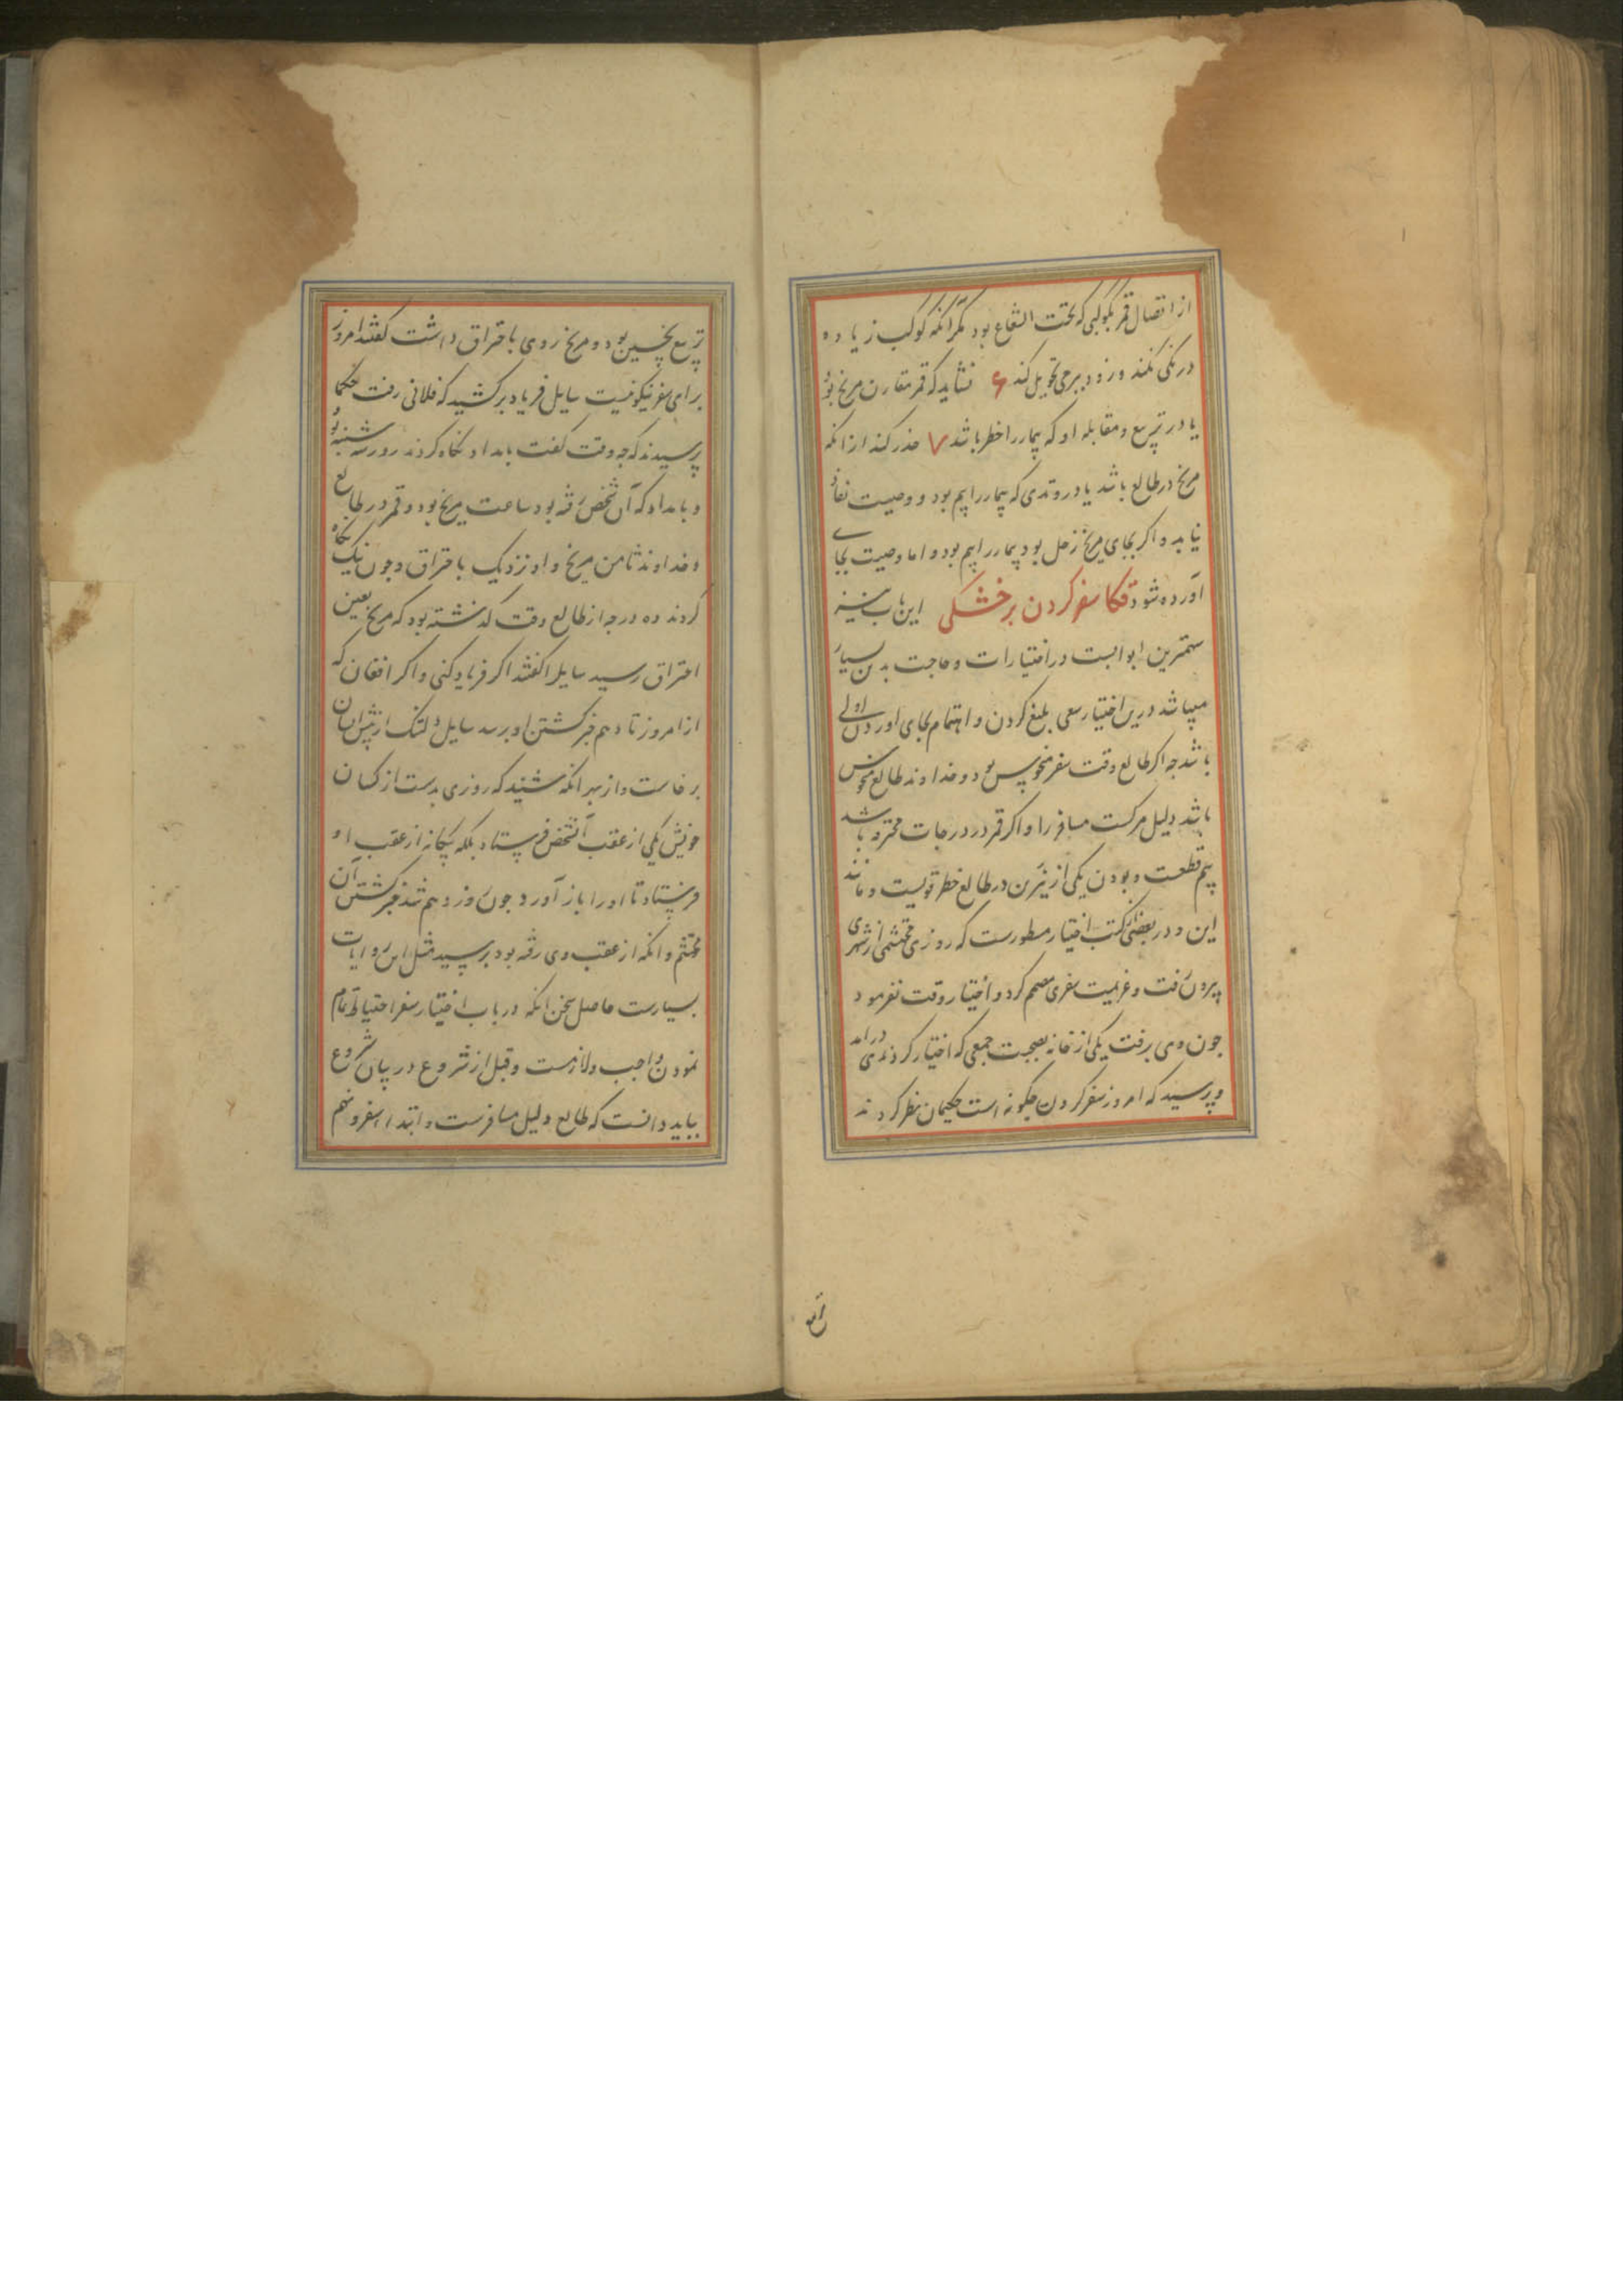 از اتصال قمر بکوکبی که تحت الشعاع بود مکر آنکه کوکب زیاده
درنکی نکند و زود ببرجی تحویل کند ۶ نشاید که قمر مقارن مریخ بود
یا در تربیع و مقابله او که بیمار را خطر باشد ۷ حذر کند از آنکه
مریخ در طالع باشد یا در وتدی که بیمار را بیم بود و وصیت نفاذ
نیابد و اکر بجای مریخ زحل بود بیمار را بیم بود و اما وصیت بجای
آورده شود سفر کردن بر خشکی این باب نیز
مهمترین ابوابست در اختیارات و حاجت بدین بسیار
میباشد درین اختیار سعی بلیغ کردن و اهتمام بجای اوردن اولی
باشد جه اکر طالع وقت سفر منحوس بود و خداوند طالع منحوس
باشد دلیل مرکست مسافر را و اکر قمر در درجات محترقه باشد
بیم قطعست و بودن یکی از نیرین در طالع خطر قویست و مانند
این و در بعضی از کتب اختیار مسطورست که روزی محتشمی از شهری
بیرون رفت و عزیمت سفری مصمم کرد و اختیار وقت نفرمود
جون وی برفت یکی از خانه بصحبت جمعی که اختیار کردندی درامد
و پرسید که امروز سفر کردن جکونه است حکیمان نظر کردند
تربیع نحسین بود و مریخ روی باحتراق داشت کفتند امروز
برای سفر نیکو نیست سایل فریاد برکشید که فلانی رفت حکما
پرسیدند که جه وقت کفت بامداد نکاه کردند روز سه شنبه بود
و بامداد که آن شخص رفته بود ساعت مریخ بود و قمر در طالع
و خداوند ثامن مریخ و او نزدیک باحتراق و جون نیک نکاه
کردند ده درجه از طالع وقت کذشته بود که مریخ بعین
احتراق رسید سایل را کفتند اکر فریاد کنی و اکر افغان که
از امروز تا دهم خبر کشتن او برسد سایل دلتنک از پیش ایشان
برخاست و از بهر آنکه شنید که روزی بدست از کسان
خویش یکی از عقب آنشخص فرستاد بلکه بیکانه از عقب او
فرستاد تا او را باز آورد جون روز دهم شد خبر کشتن آن
محتشم و انکه از عقب وی رفته بود برسید مثل این روایات
بسیارست حاصل سخن انکه در باب اختیار سفر احتیاطی تمام
نمودن واجب و لازمست و قبل از شروع در بیان شروع
بباید دانست که طالع دلیل مسافرست و ابتداء سفر و نهم